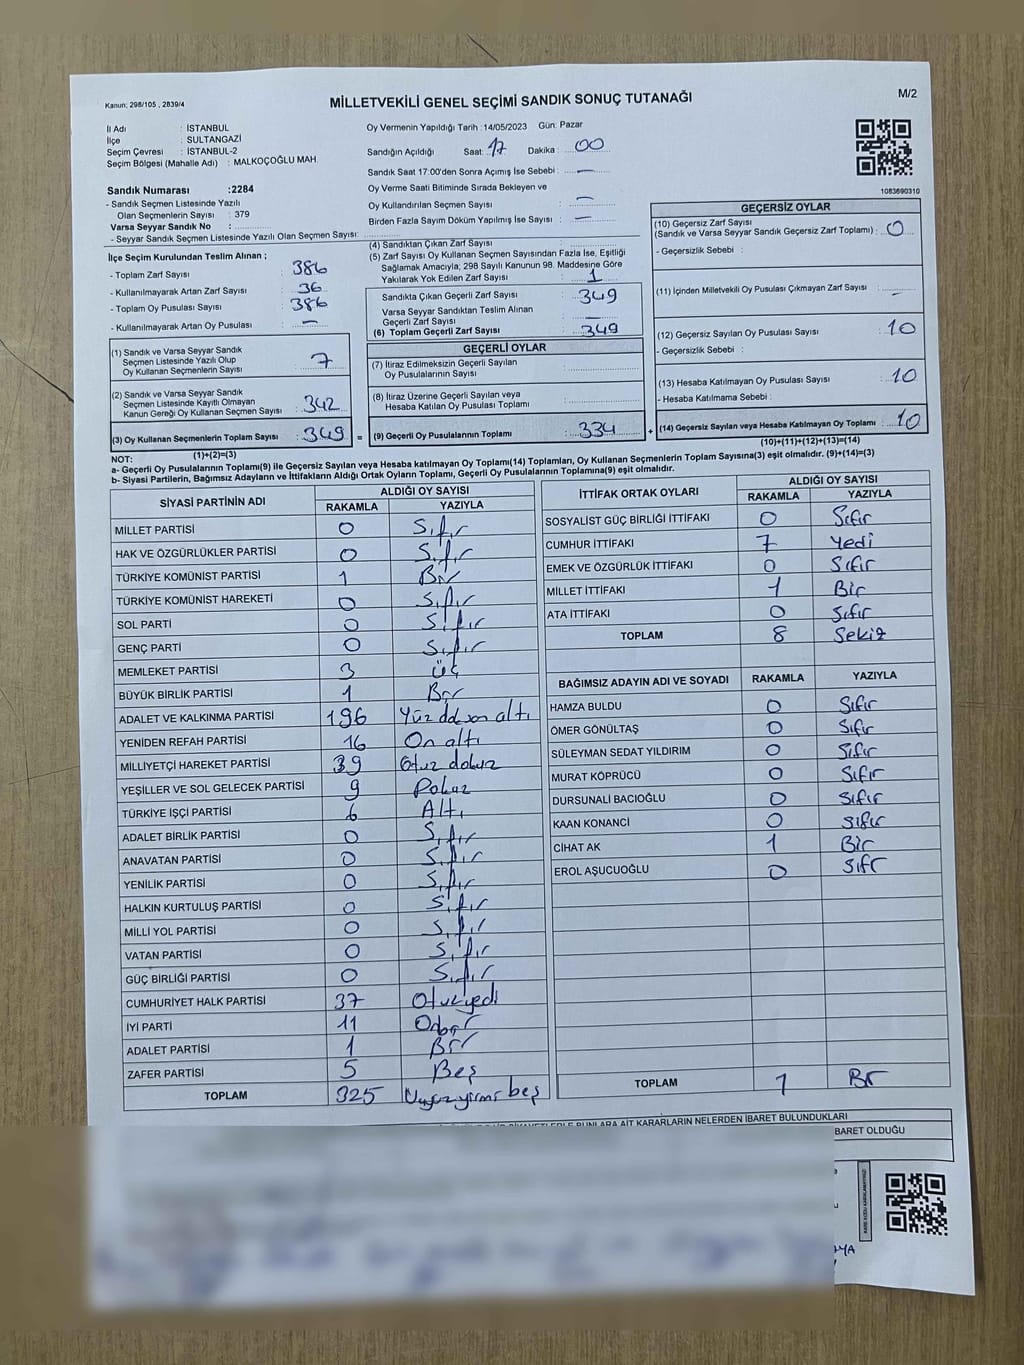 Kanun; 298/105 , 2839/4
MİLLETVEKİLİ GENEL SEÇİMİ SANDIK SONUÇ TUTANAĞI
M/2
İl Adı : İSTANBUL
İlçe : SULTANGAZİ
Seçim Çevresi : İSTANBUL-2
Seçim Bölgesi (Mahalle Adı) : MALKOÇOĞLU MAH.
Sandık Numarası :2284
- Sandık Seçmen Listesinde Yazılı
Olan Seçmenlerin Sayısı : 379
Varsa Seyyar Sandık No :
- Seyyar Sandık Seçmen Listesinde Yazılı Olan Seçmen Sayısı:
Oy Vermenin Yapıldığı Tarih :14/05/2023 Gün: Pazar
Sandığın Açıldığı Saat: 17 Dakika : 00
Sandık Saat 17:00'den Sonra Açımış İse Sebebi : —
Oy Verme Saati Bitiminde Sırada Bekleyen ve
Oy Kullandırılan Seçmen Sayısı : —
Birden Fazla Sayım Döküm Yapılmış İse Sayısı : —
1083690310
İlçe Seçim Kurulundan Teslim Alınan ;
- Toplam Zarf Sayısı : 386
- Kullanılmayarak Artan Zarf Sayısı : 36
- Toplam Oy Pusulası Sayısı : 386
- Kullanılmayarak Artan Oy Pusulası : —
(1) Sandık ve Varsa Seyyar Sandık
Seçmen Listesinde Yazılı Olup
Oy Kullanan Seçmenlerin Sayısı : 7
(2) Sandık ve Varsa Seyyar Sandık
Seçmen Listesinde Kayıtlı Olmayan
Kanun Gereği Oy Kullanan Seçmen Sayısı : 342
(3) Oy Kullanan Seçmenlerin Toplam Sayısı : 349 =
(1)+(2)=(3)
(4) Sandıktan Çıkan Zarf Sayısı :
(5) Zarf Sayısı Oy Kullanan Seçmen Sayısından Fazla İse, Eşitliği
Sağlamak Amacıyla; 298 Sayılı Kanunun 98. Maddesine Göre
Yakılarak Yok Edilen Zarf Sayısı : 1
Sandıkta Çıkan Geçerli Zarf Sayısı : 349
Varsa Seyyar Sandıktan Teslim Alınan
Geçerli Zarf Sayısı : —
(6) Toplam Geçerli Zarf Sayısı : 349
GEÇERLİ OYLAR
(7) İtiraz Edilmeksizin Geçerli Sayılan
Oy Pusulalarının Sayısı :
(8) İtiraz Üzerine Geçerli Sayılan veya
Hesaba Katılan Oy Pusulası Toplamı :
(9) Geçerli Oy Pusulalarının Toplamı : 334 +
GEÇERSİZ OYLAR
(10) Geçersiz Zarf Sayısı
(Sandık ve Varsa Seyyar Sandık Geçersiz Zarf Toplamı) : 0
- Geçersizlik Sebebi :
(11) İçinden Milletvekili Oy Pusulası Çıkmayan Zarf Sayısı : —
(12) Geçersiz Sayılan Oy Pusulası Sayısı : 10
- Geçersizlik Sebebi :
(13) Hesaba Katılmayan Oy Pusulası Sayısı : 10
- Hesaba Katılmama Sebebi :
(14) Geçersiz Sayılan veya Hesaba Katılmayan Oy Toplamı : 10
(10)+(11)+(12)+(13)=(14)
NOT:
a- Geçerli Oy Pusulalarının Toplamı(9) ile Geçersiz Sayılan veya Hesaba katılmayan Oy Toplamı(14) Toplamları, Oy Kullanan Seçmenlerin Toplam Sayısına(3) eşit olmalıdır. (9)+(14)=(3)
b- Siyasi Partilerin, Bağımsız Adayların ve İttifakların Aldığı Ortak Oyların Toplamı, Geçerli Oy Pusulalarının Toplamına(9) eşit olmalıdır.
SİYASİ PARTİNİN ADI ALDIĞI OY SAYISI
RAKAMLA YAZIYLA
MİLLET PARTİSİ 0 Sıfır
HAK VE ÖZGÜRLÜKLER PARTİSİ 0 Sıfır
TÜRKİYE KOMÜNİST PARTİSİ 1 Bir
TÜRKİYE KOMÜNİST HAREKETİ 0 Sıfır
SOL PARTİ 0 Sıfır
GENÇ PARTİ 0 Sıfır
MEMLEKET PARTİSİ 3 Üç
BÜYÜK BİRLİK PARTİSİ 1 Bir
ADALET VE KALKINMA PARTİSİ 196 Yüz altı
YENİDEN REFAH PARTİSİ 16 On altı
MİLLİYETÇİ HAREKET PARTİSİ 39 Otuz dokuz
YEŞİLLER VE SOL GELECEK PARTİSİ 9 Dokuz
TÜRKİYE İŞÇİ PARTİSİ 6 Altı
ADALET BİRLİK PARTİSİ 0 Sıfır
ANAVATAN PARTİSİ 0 Sıfır
YENİLİK PARTİSİ 0 Sıfır
HALKIN KURTULUŞ PARTİSİ 0 Sıfır
MİLLİ YOL PARTİSİ 0 Sıfır
VATAN PARTİSİ 0 Sıfır
GÜÇ BİRLİĞİ PARTİSİ 0 Sıfır
CUMHURİYET HALK PARTİSİ 37 Otuzyedi
İYİ PARTİ 11 Onbir
ADALET PARTİSİ 1 Bir
ZAFER PARTİSİ 5 Beş
TOPLAM 325 Üçyüzyirmi beş
İTTİFAK ORTAK OYLARI ALDIĞI OY SAYISI
RAKAMLA YAZIYLA
SOSYALİST GÜÇ BİRLİĞİ İTTİFAKI 0 Sıfır
CUMHUR İTTİFAKI 7 Yedi
EMEK VE ÖZGÜRLÜK İTTİFAKI 0 Sıfır
MİLLET İTTİFAKI 1 Bir
ATA İTTİFAKI 0 Sıfır
TOPLAM 8 Sekiz
BAĞIMSIZ ADAYIN ADI VE SOYADI RAKAMLA YAZIYLA
HAMZA BULDU 0 Sıfır
ÖMER GÖNÜLTAŞ 0 Sıfır
SÜLEYMAN SEDAT YILDIRIM 0 Sıfır
MURAT KÖPRÜCÜ 0 Sıfır
DURSUNALİ BACIOĞLU 0 Sıfır
KAAN KONANCİ 0 Sıfır
CİHAT AK 1 Bir
EROL AŞUCUOĞLU 0 Sıfır
TOPLAM 1 Bir
BUNLARA AİT KARARLARIN NELERDEN İBARET BULUNDUKLARI
BARET OLDUĞU